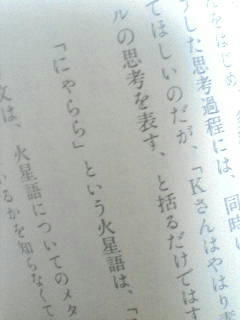 をはじめ、
した思考過程には、同時
てほしいのだが、「Kさんはやはり
ルの思考を表す、と括るだけではす
「にゃらら」という火星語は、「
文は、火星語についてのメタ
いるかを知らなくて